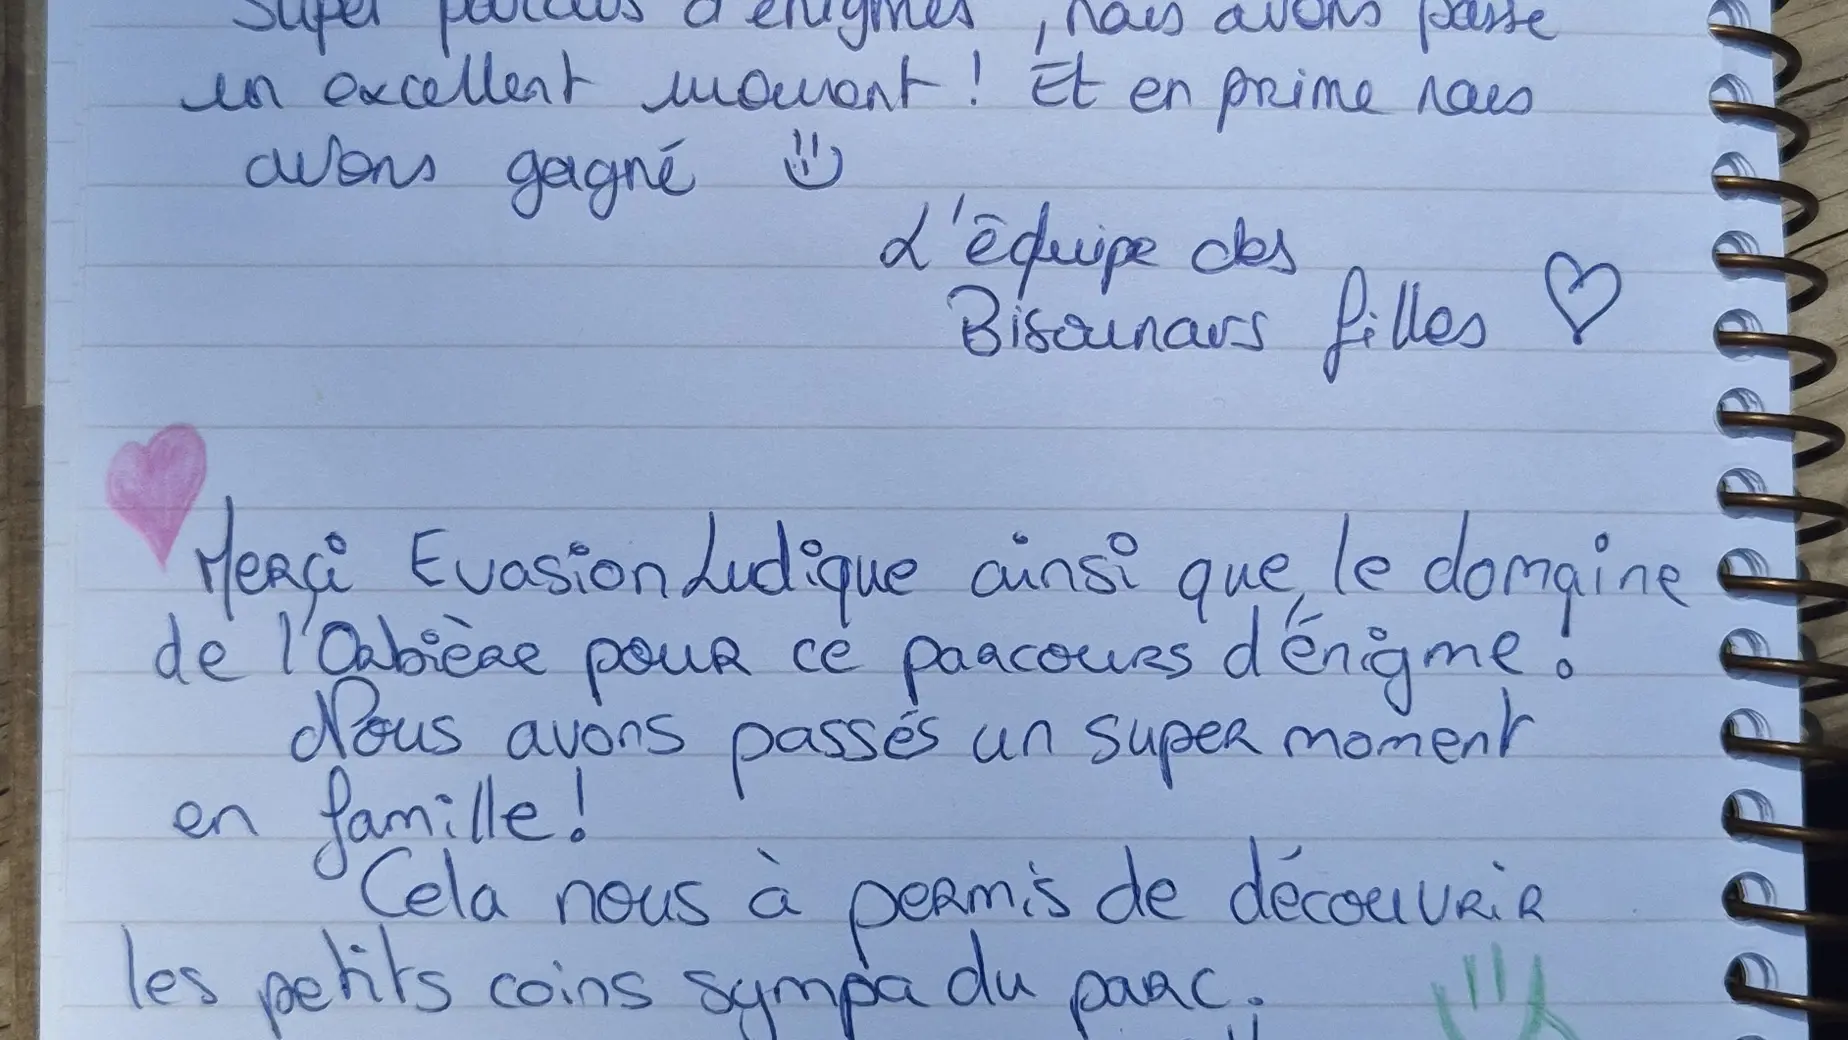 Super parcours d'énigmes, nous avons passé
un excellent moment ! Et en prime nous
avons gagné
L'équipe des
Bisounours filles
Merçi Evasion Ludique ainsi que le domaine
de l'Orbière pour ce parcours d'énigme !
Nous avons passés un super moment
en famille !
Cela nous à permis de découvrir
les petits coins sympa du parc.